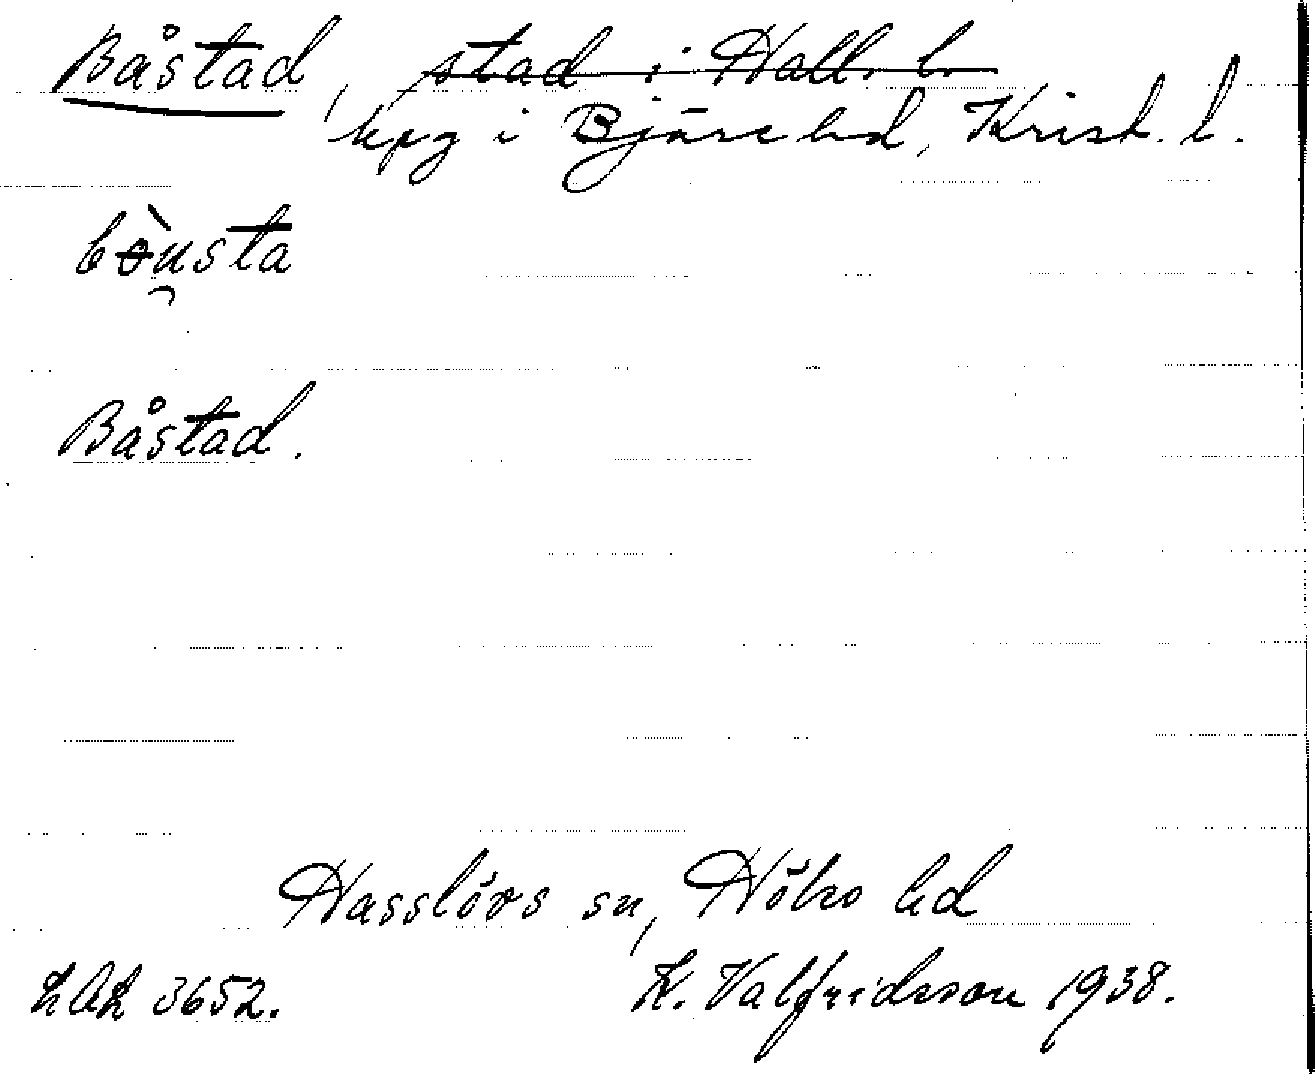 Båstad, ~~stad i Hall. l.~~
kpg i Bjäre hd, Krist. l.
Båstad.
Hasslövs sn, Höks hd
LAL 3652.
K. Valfridsson 1938.